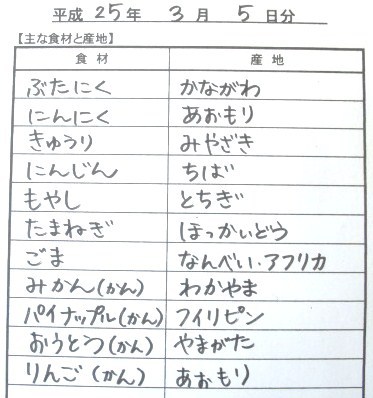 平成 25年 3月 5日分
【主な食材と産地】
食材 産地
ぶたにく かながわ
にんにく あおもり
きゅうり みやざき
にんじん ちば
もやし とちぎ
たまねぎ ほっかいどう
ごま なんべい・アフリカ
みかん(かん) わかやま
パイナップル(かん) フィリピン
おうとう(かん) やまがた
りんご(かん) あおもり